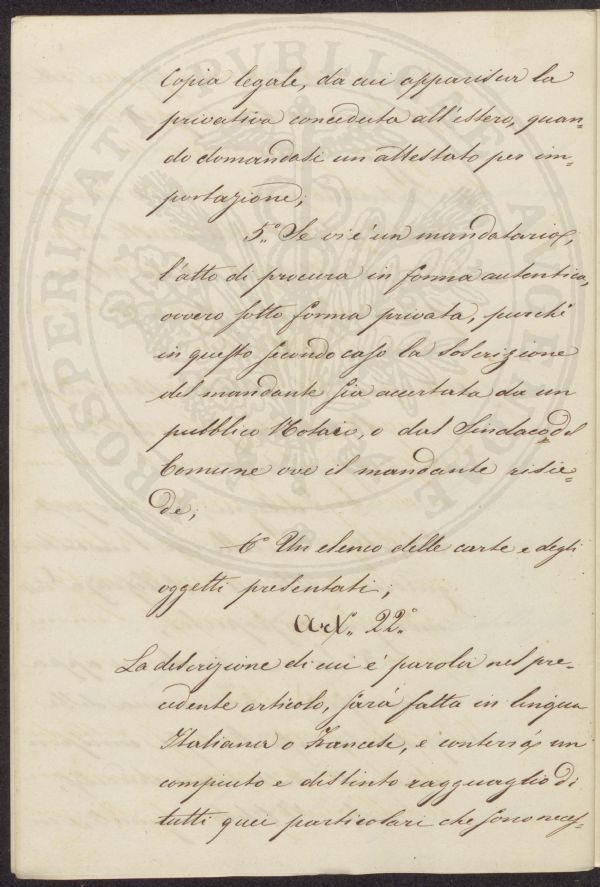 Copia legale, da cui apparisca la
privativa conceduta all'estero, quan-
do domandasi un attestato per im-
portazione;
5.° Se vi è un mandatario,
l'atto di procura in forma autentica,
ovvero sotto forma privata, purché
in questo secondo caso la soscrizione
del mandante sia accertata da un
pubblico Notaio, o dal Sindaco del
Comune ove il mandante risie-
de;
6° Un elenco delle carte e degli
oggetti presentati;
Art. 22.°
La descrizione di cui è parola nel pre-
cedente articolo, sarà fatta in lingua
Italiana o Francese, e conterrà un
compiuto e distinto ragguaglio di
tutti quei particolari che sono neces-
PROSPERITATI PUBLICAE AUGENDAE